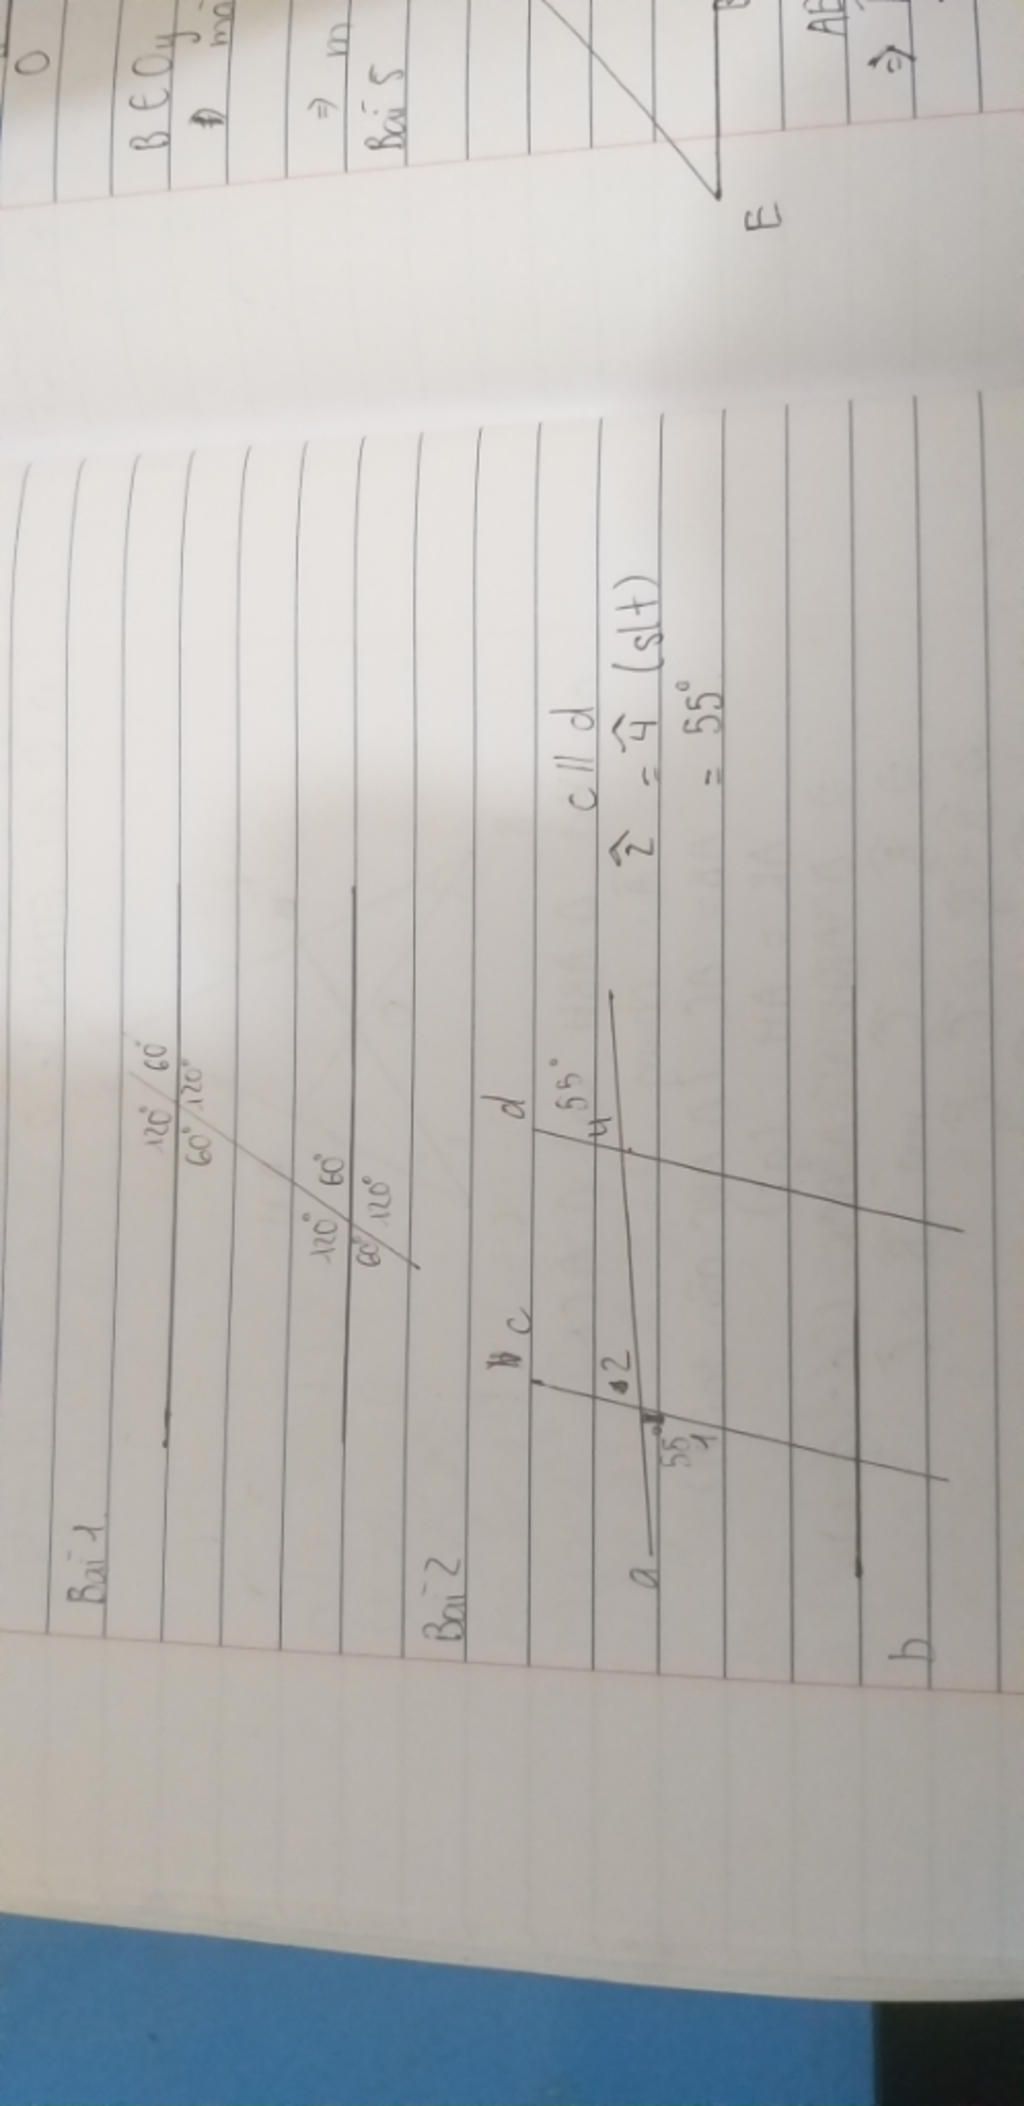 Bài 1
120° 60°
60° 120°
120° 60°
60° 120°
Bài 2
c d
55°
2 4
a
55°
1
b
c // d
2̂ = 4̂ (slt)
= 55°
O
B ∈ Oy
⇒ m
Bài 5
E
⇒